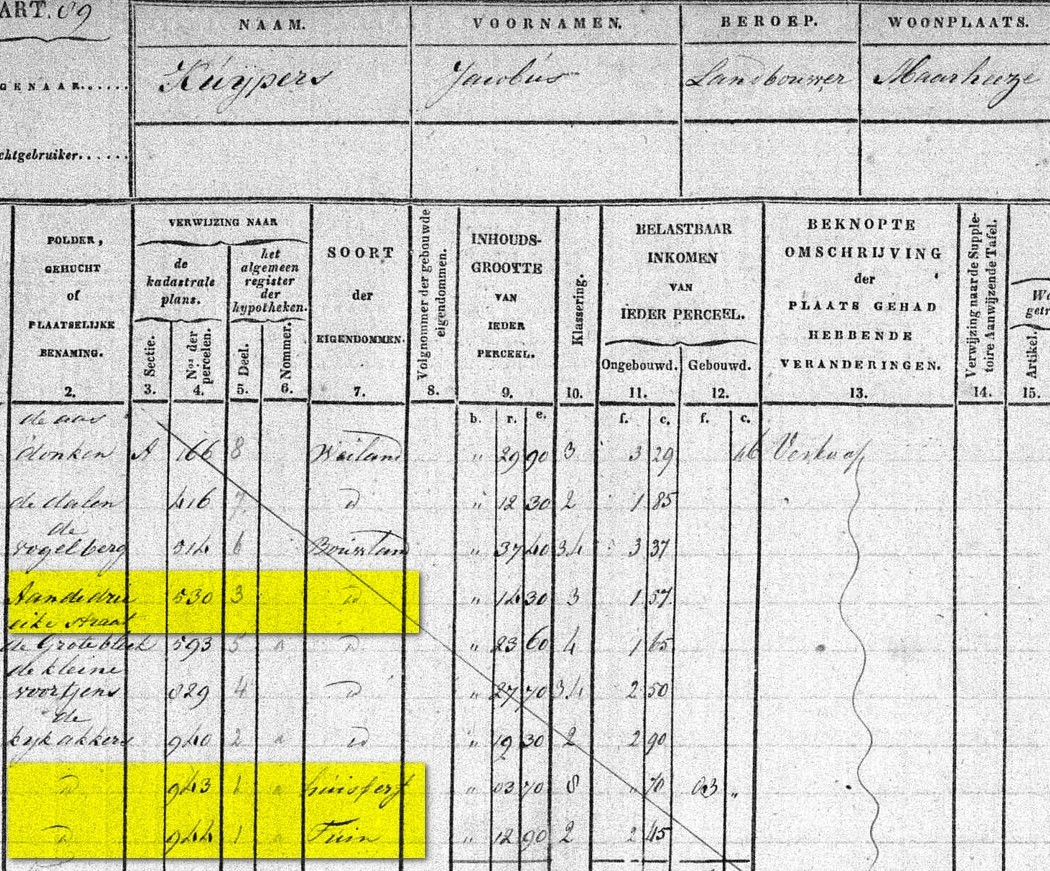 ART. 69
NAAM. VOORNAMEN. BEROEP. WOONPLAATS.
GENAAR...... Kuÿpers Jacobus Landbouwer Maarheeze
chtgebruiker......
POLDER, GEHUCHT of PLAATSELIJKE BENAMING.
VERWIJZING NAAR
de kadastrale plans.
het algemeen register der hypotheken.
Sectie. Nos der percelen. Deel. Nommer.
SOORT der EIGENDOMMEN.
Volgnommer der gebouwde eigendommen.
INHOUDS-GROOTTE VAN IEDER PERCEEL.
Klassering.
BELASTBAAR INKOMEN VAN IEDER PERCEEL.
Ongebouwd. Gebouwd.
BEKNOPTE OMSCHRIJVING der PLAATS GEHAD HEBBENDE VERANDERINGEN.
Verwijzing naar de Suppletoire Aanwijzende Tafel.
Artikel.
2. 3. 4. 5. 6. 7. 8. 9. 10. 11. 12. 13. 14. 15.
b. r. e. f. c. f. c.
de aas
donken A 166 8 Weiland " 29 90 3 3 29 46 Verkoop
de dalen 416 7 d " 12 30 2 1 85
de
vogelberg 514 6 Bouwland " 37 40 3.4 3 37
Aan de drie 530 3 d " 14 30 3 1 57
eike straat
de Grote bleek 593 5 " d " 23 60 4 1 65
de kleine
voortjens 829 4 d " 27 70 3.4 2 50
de
kijk akkers 940 2 " d " 19 30 2 2 90
d 943 1 " huis & erf " 03 70 8 " 70 03 "
d 944 1 " Tuin " 12 90 2 2 45